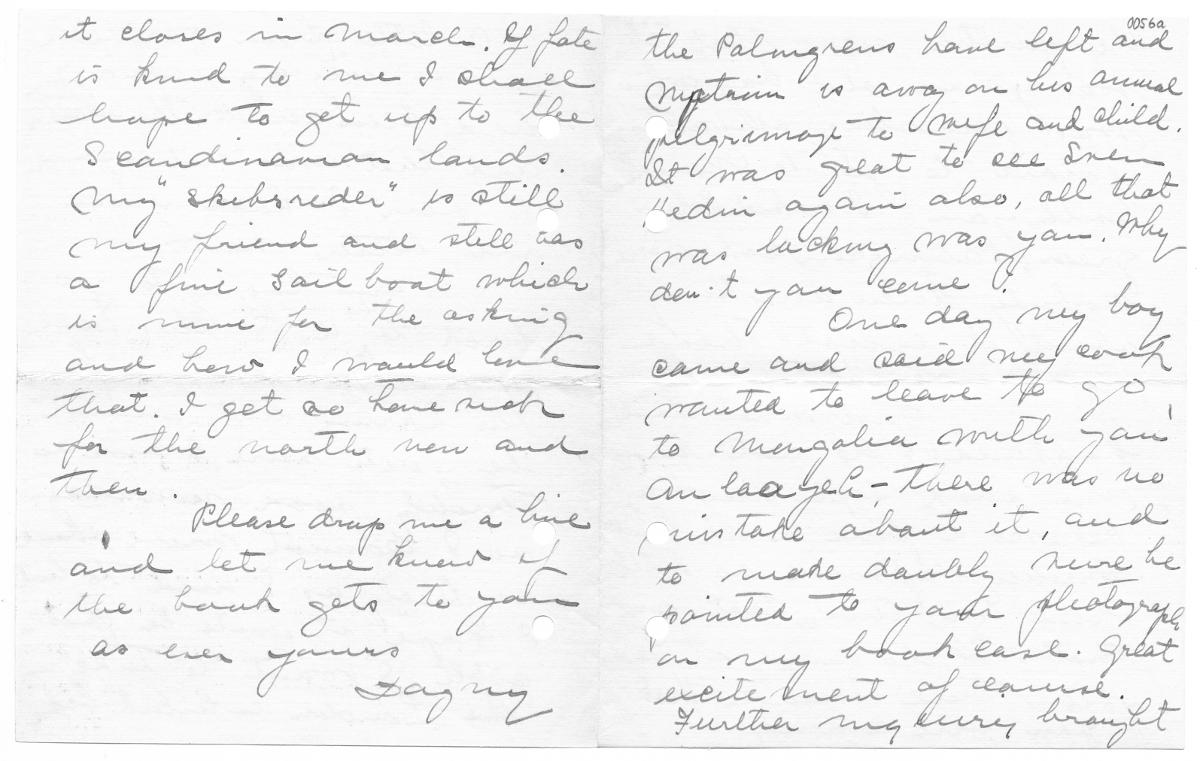 it closes in March. If fate
is kind to me I shall
hope to get up to the
Scandinavian lands.
My "skibsreder" is still
my friend and still has
a fine sail boat which
is mine for the asking
and how I would love
that. I get so homesick
for the north now and
then.
Please drop me a line
and let me know if
the book gets to you
as ever yours
Dagny
0056a
the Palmgrens have left and
is away on his annual
pilgrimage to wife and child.
It was great to see Sven
Hedin again also, all that
was lacking was you. Why
don't you come?
One day my boy
came and said my cook
wanted to leave to go
to Mongolia with you
An laayeh - there was no
mistake about it, and
to make doubly sure he
pointed to your photograph
on my book case. Great
excitement of course.
Further inquiry brought